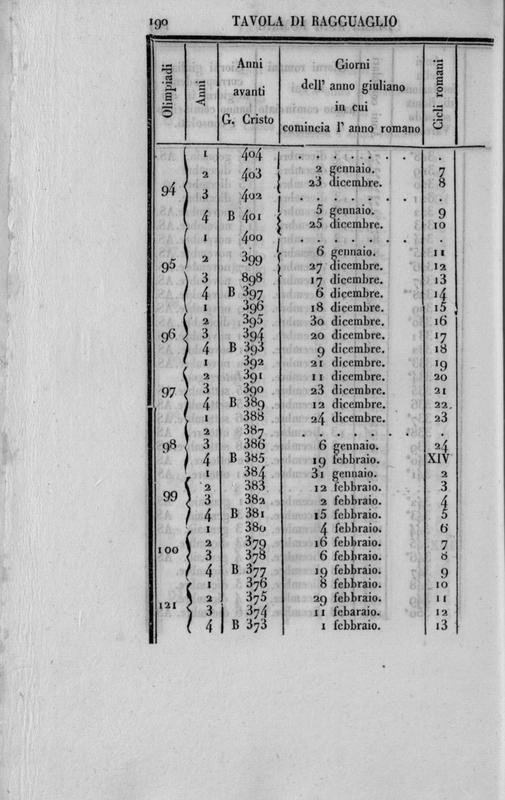 190 TAVOLA DI RAGGUAGLIO
Olimpiadi | Anni | Anni avanti G. Cristo | Giorni dell' anno giuliano in cui comincia l' anno romano | Cicli romani
1 404 . . . . . . . .
94 2 403 2 gennaio. 7
23 dicembre. 8
3 402 . . . . . . . .
4 B 401 5 gennaio. 9
25 dicembre. 10
1 400 . . . . . . . .
95 2 399 6 gennaio. 11
27 dicembre. 12
3 898 17 dicembre. 13
4 B 397 6 dicembre. 14
1 396 18 dicembre. 15
96 2 395 30 dicembre. 16
3 394 20 dicembre. 17
4 B 393 9 dicembre. 18
1 392 21 dicembre. 19
97 2 391 11 dicembre. 20
3 390 23 dicembre. 21
4 B 389 12 dicembre. 22.
1 388 24 dicembre. 23
98 2 387 . . . . . . . .
3 386 6 gennaio. 24
4 B 385 19 febbraio. XIV
1 384 31 gennaio. 2
99 2 383 12 febbraio. 3
3 382 2 febbraio. 4
4 B 381 15 febbraio. 5
1 380 4 febbraio. 6
100 2 379 16 febbraio. 7
3 378 6 febbraio. 8
4 B 377 19 febbraio. 9
1 376 8 febbraio. 10
121 2 375 29 febbraio. 11
3 374 11 febaraio. 12
4 B 373 1 febbraio. 13